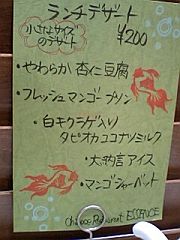 ランチデザート
小さなサイズ
のデザート
¥200
・やわらか杏仁豆腐
・フレッシュマンゴープリン
・白キクラゲ入り
タピオカココナツミルク
・大納言アイス
・マンゴシャーベット
Chinese Restaurant ESSENCE